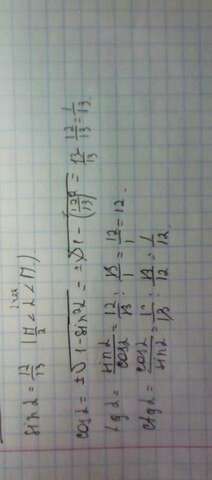 sin α = 12/13 (π/2 < α < π)
cos α = ±√1 - sin²α = ±√1 - (12/13)² = 13/13 - 12/13 = 1/13
tg α = sin α/cos α = 12/13 : 13/1 = 12/1 = 12.
ctg α = cos α/sin α = 1/13 : 13/12 = 1/12.